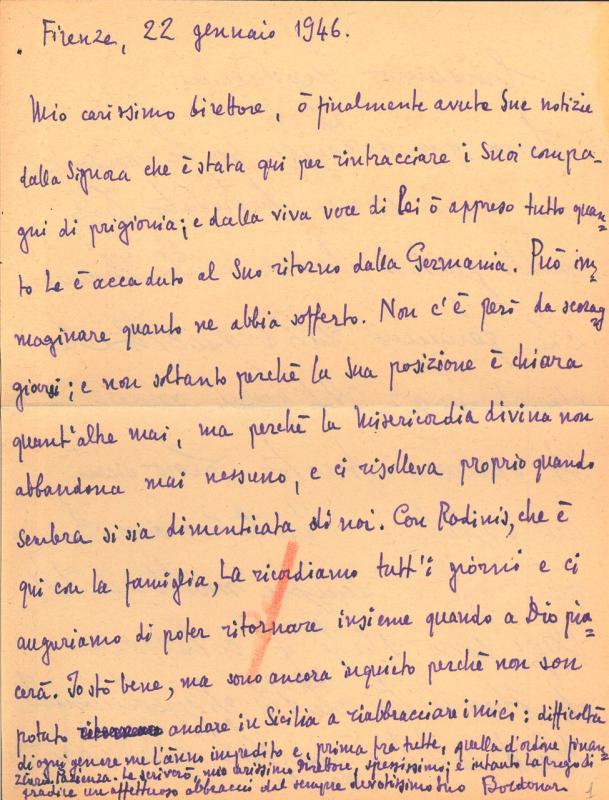 Firenze, 22 gennaio 1946.
Mio carissimo Direttore, ò finalmente avute Sue notizie
dalla Signora che è stata qui per rintracciare i Suoi compa-
gni di prigionia; e dalla viva voce di Lei ò appreso tutto quan=
to Le è accaduto al Suo ritorno dalla Germania. Può im=
maginare quanto ne abbia sofferto. Non c'è però da scorag=
giarsi; e non soltanto perchè la Sua posizione è chiara
quant'altre mai, ma perchè la Misericordia divina non
abbandona mai nessuno, e ci risolleva proprio quando
sembra si sia dimenticata di noi. Con Rodinis, che è
qui con la famiglia, La ricordiamo tutt'i giorni e ci
auguriamo di poter ritornare insieme quando a Dio pia=
cerà. Io stò bene, ma sono ancora inquieto perchè non son
potuto andare in Sicilia a riabbracciare i miei: difficoltà
di ogni genere me l'ànno impedito e, prima fra tutte, quella d'ordine finan=
ziario. Pazienza. Le scriverò, mio carissimo Direttore, spessissimo; e intanto La prego di
gradire un affettuoso abbraccio dal sempre devotissimo Suo
1